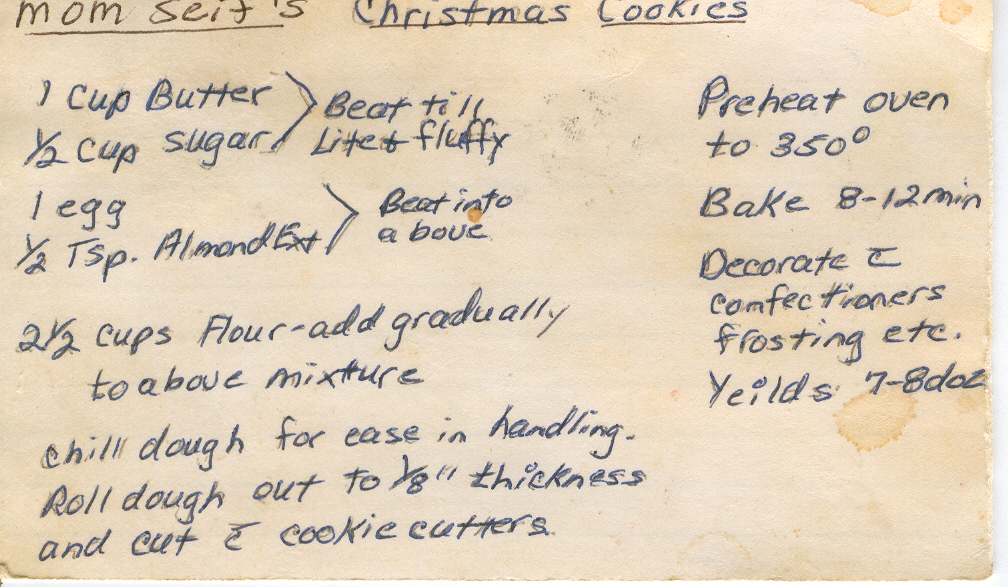 mom Seit's Christmas Cookies
1 Cup Butter
½ Cup sugar
Beat till
Lite & fluffy
1 egg
½ Tsp. Almond Ext
Beat into
above
2½ cups Flour-add gradually
to above mixture
chill dough for ease in handling.
Roll dough out to ⅛" thickness
and cut c̄ cookie cutters
Preheat oven
to 350°
Bake 8-12 min
Decorate c̄
comfectioners
frosting etc.
Yeilds 7-8 doz